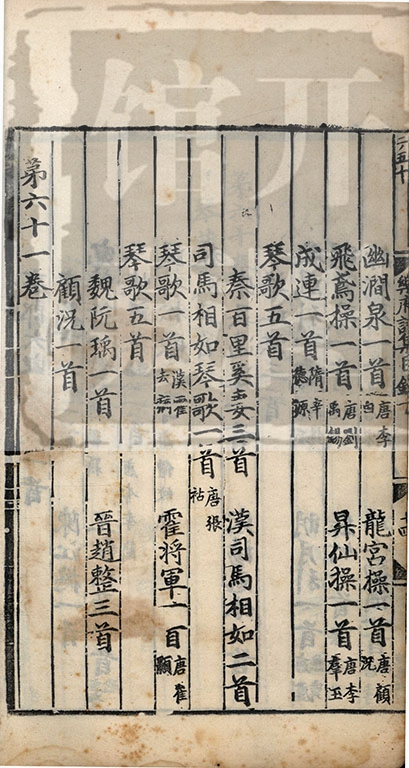 幽澗泉一首唐李白 龍宮操一首唐顧況
飛鳶操一首唐劉禹錫 昇仙操一首唐李羣玉
成連一首隋辛德源
琴歌五首
秦百里奚妻三首 漢司馬相如二首
司馬相如琴歌一首唐張祜
琴歌一首漢霍去病 霍將軍一首唐崔顥
琴歌五首
魏阮瑀一首 晉趙整三首
顧況一首
第六十一卷